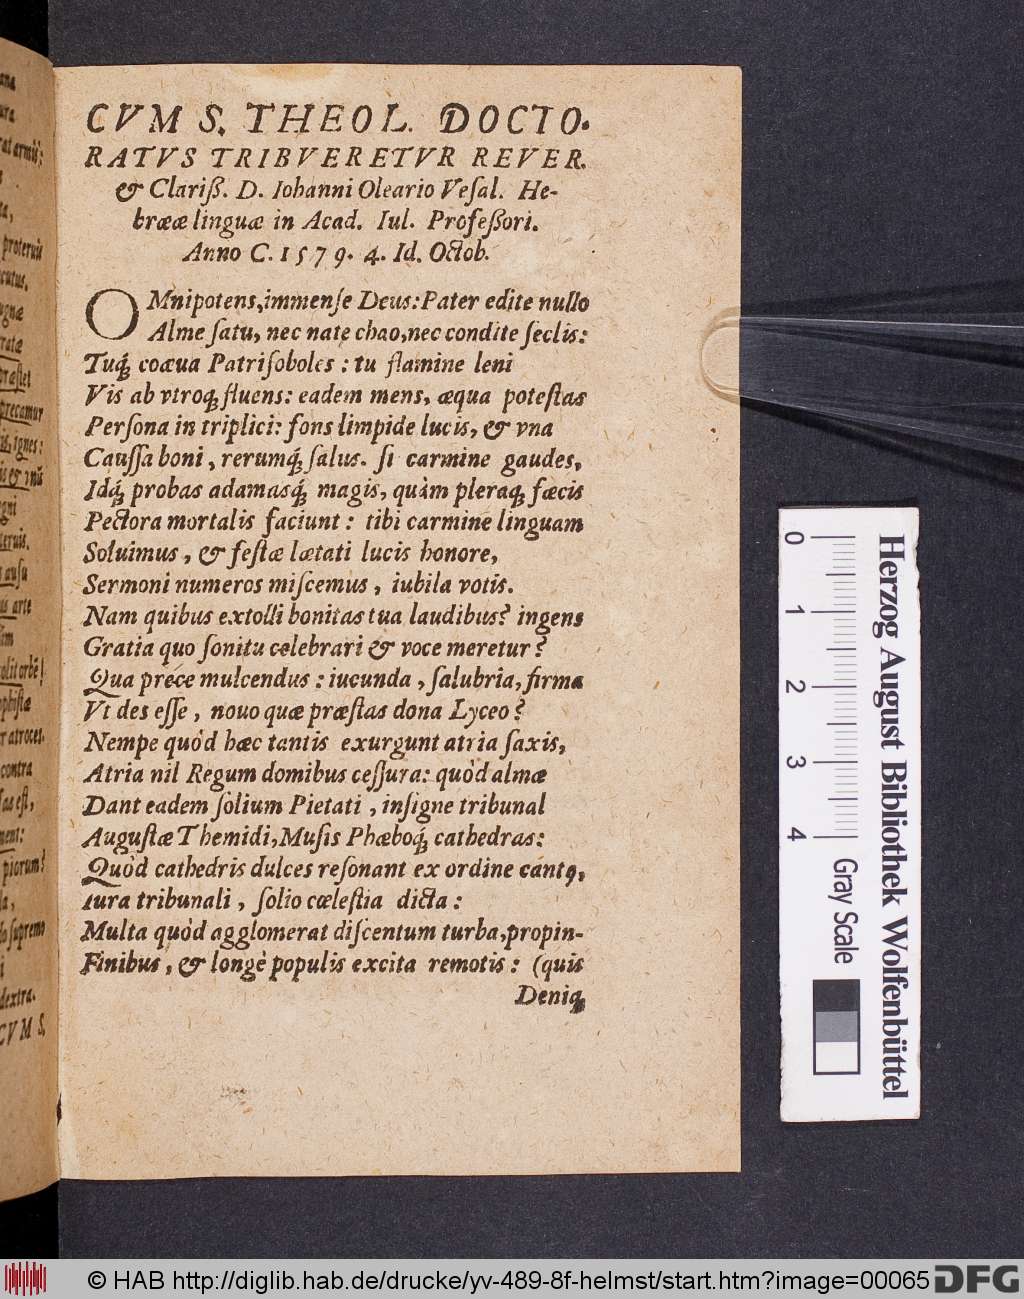 CVM S. THEOL. DOCTO-
RATVS TRIBVERETVR REVER.
& Clariß. D. Iohanni Oleario Veſal. He-
brææ linguæ in Acad. Iul. Profeßori.
Anno C. 1579. 4. Id. Octob.
OMnipotens, immenſe Deus: Pater edite nullo
Alme ſatu, nec nate chao, nec condite ſeclis:
Tuq́; coæua Patri ſoboles: tu flamine leni
Vis ab vtroq; fluens: eadem mens, æqua poteſtas
Perſona in triplici: fons limpide lucis, & vna
Cauſſa boni, rerumq́; ſalus. ſi carmine gaudes,
Idq́; probas adamasq́; magis, quàm pleraq; fæcis
Pectora mortalis faciunt: tibi carmine linguam
Soluimus, & feſtæ lætati lucis honore,
Sermoni numeros miſcemus, iubila votis.
Nam quibus extolli bonitas tua laudibus? ingens
Gratia quo ſonitu celebrari & voce meretur?
Qua prece mulcendus: iucunda, ſalubria, firma
Vt des eſſe, nouo quæ præſtas dona Lyceo?
Nempe quòd hæc tantis exurgunt atria ſaxis,
Atria nil Regum domibus ceſſura: quòd almæ
Dant eadem ſolium Pietati, inſigne tribunal
Auguſtæ Themidi, Muſis Phæboq́; cathedras:
Quòd cathedris dulces reſonant ex ordine cantꝰ,
Iura tribunali, ſolio cœleſtia dicta:
Multa quòd agglomerat diſcentum turba, propin-
Finibus, & longè populis excita remotis: (quis
Deniq;
proteruis
precamur
CVM S.
0 1 2 3 4
Gray Scale
Herzog August Bibliothek Wolfenbüttel
© HAB http://diglib.hab.de/drucke/yv-489-8f-helmst/start.htm?image=00065
DFG